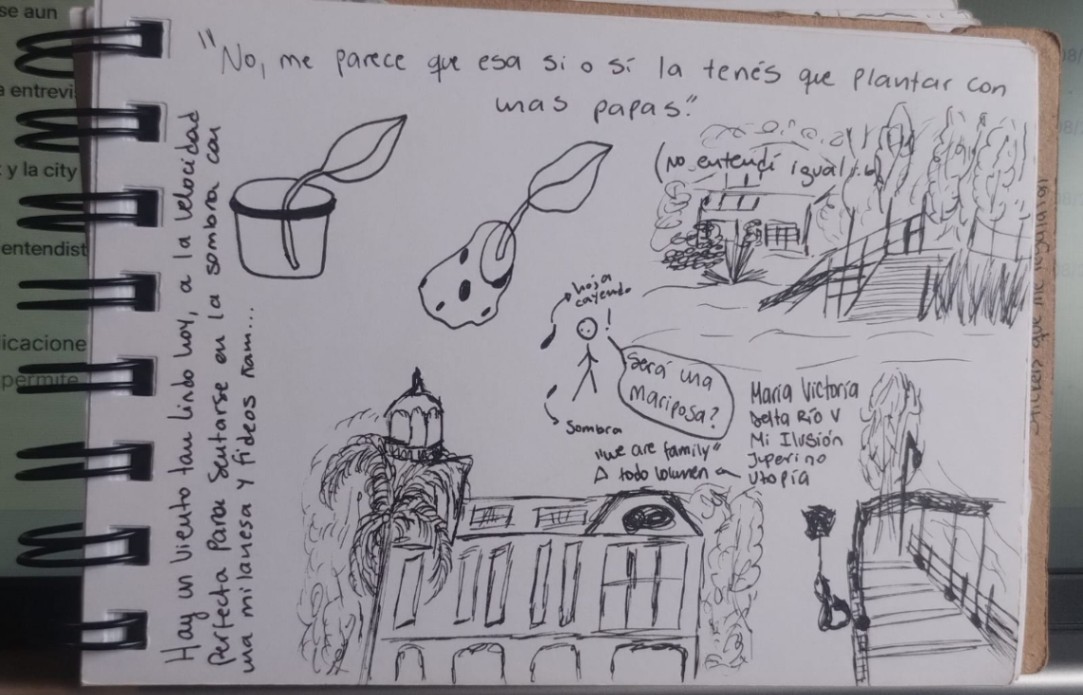 "No, me parece que esa si o sí la tenés que plantar con
unas papas."
(No entendí igual
Hay un viento tan lindo hoy, a la velocidad
perfecta para sentarse en la sombra con
una milanesa y fideos ñam...
hoja
cayendo
!
Será una
Mariposa?
Sombra
"we are family"
A todo volumen
María Victoria
Delta Río V
Mi Ilusión
Juperino
Utopía
se aun
a entrevi
y la city
entendist
icacione
permite